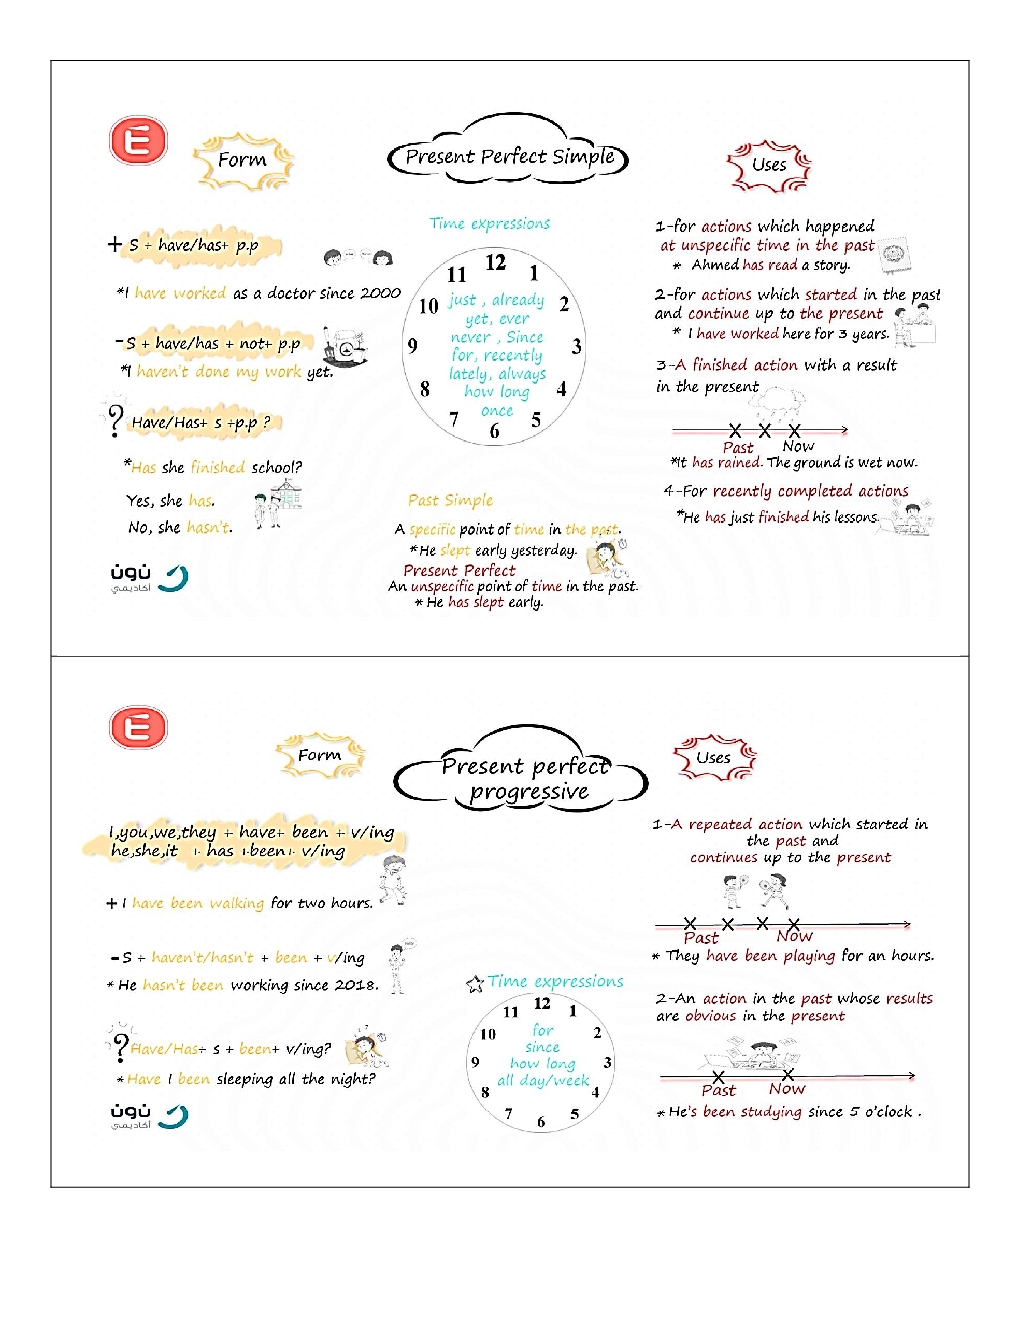 É
Form
Present Perfect Simple
Uses
+ S + have/has+ p.p
*I have worked as a doctor since 2000
-S + have/has + not+ p.p
*I haven't done my work yet.
? Have/Has+ s +p.p ?
*Has she finished school?
Yes, she has.
No, she hasn't.
نون
أكاديمي
Time expressions
12
11 1
10 2
9 3
8 4
7 5
6
just , already
yet, ever
never , Since
for, recently
lately, always
how long
once
Past Simple
A specific point of time in the past.
*He slept early yesterday.
Present Perfect
An unspecific point of time in the past.
* He has slept early.
1-for actions which happened
at unspecific time in the past
* Ahmed has read a story.
2-for actions which started in the past
and continue up to the present
* I have worked here for 3 years.
3-A finished action with a result
in the present
Past Now
*It has rained. The ground is wet now.
4-For recently completed actions
*He has just finished his lessons.
É
Form
Present perfect
progressive
Uses
I,you,we,they + have+ been + v/ing
he,she,it + has +been+ v/ing
+ I have been walking for two hours.
-S + haven't/hasn't + been + v/ing
* He hasn't been working since 2018.
? Have/Has+ s + been+ v/ing?
* Have I been sleeping all the night?
نون
أكاديمي
Time expressions
12
11 1
10 2
9 3
8 4
7 5
6
for
since
how long
all day/week
1-A repeated action which started in
the past and
continues up to the present
Past Now
* They have been playing for an hours.
2-An action in the past whose results
are obvious in the present
Past Now
* He's been studying since 5 o'clock .